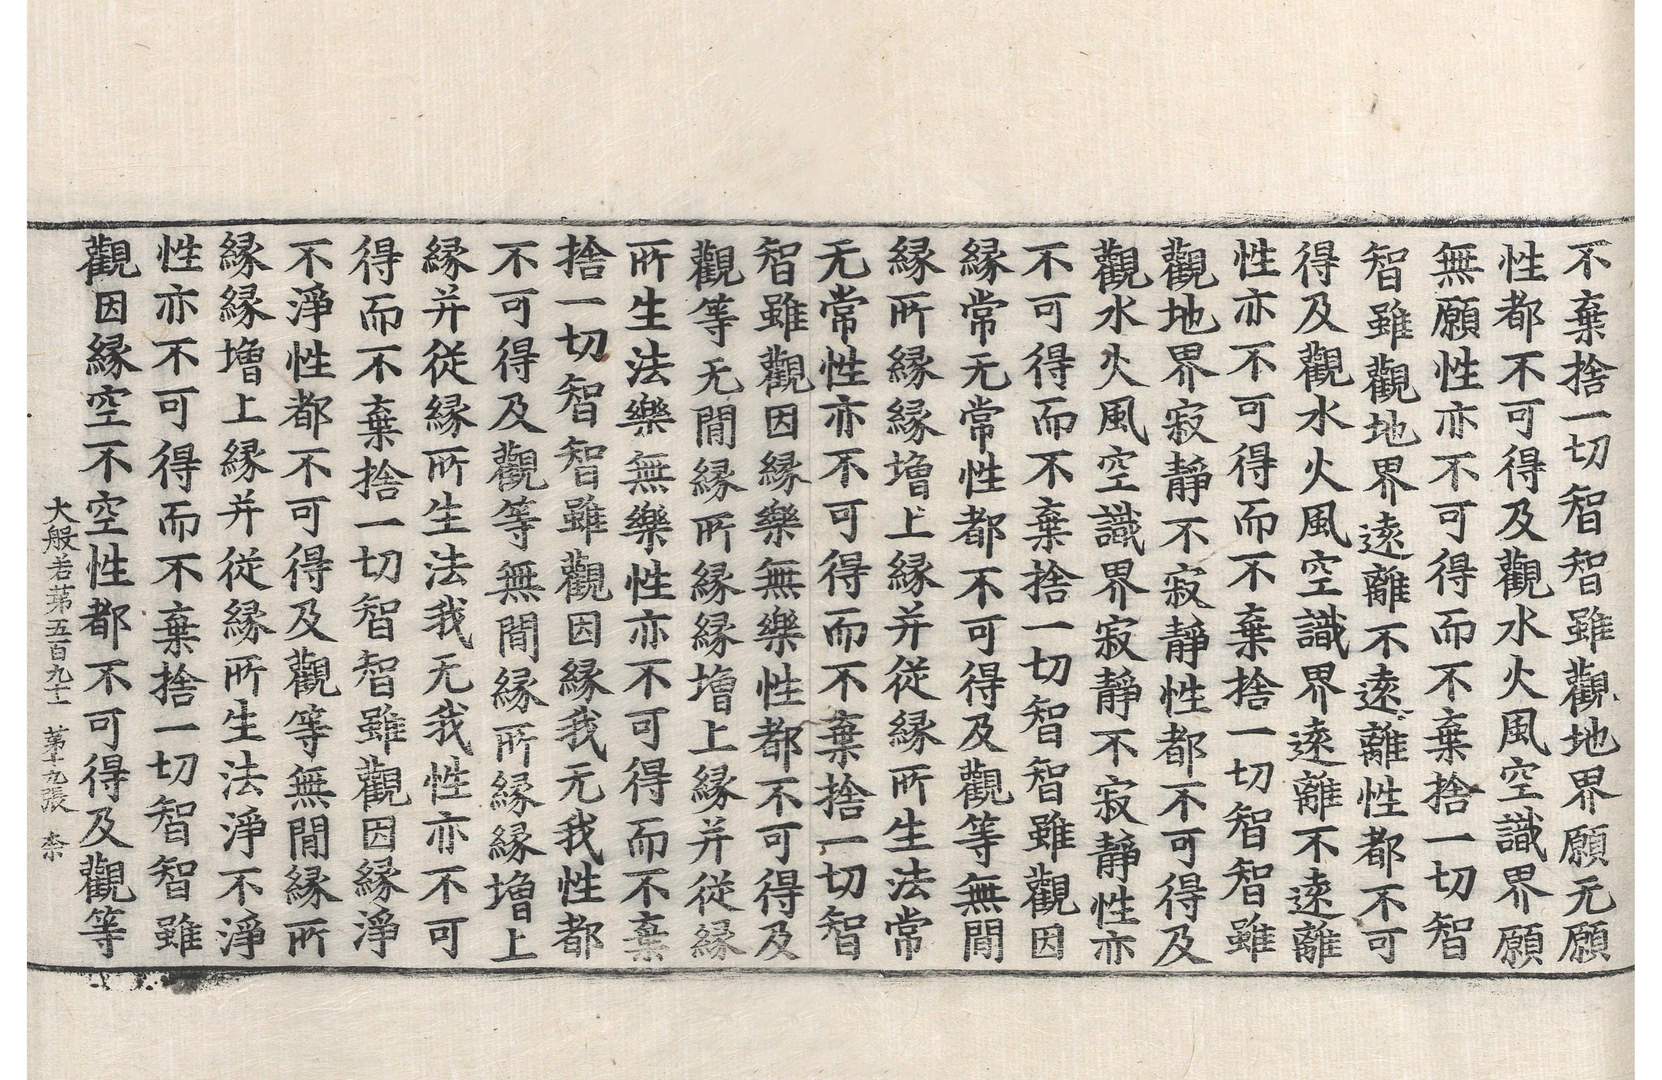 不棄捨一切智智雖觀地界願无願
性都不可得及觀水火風空識界願
無願性亦不可得而不棄捨一切智
智雖觀地界遠離不遠離性都不可
得及觀水火風空識界遠離不遠離
性亦不可得而不棄捨一切智智雖
觀地界寂靜不寂靜性都不可得及
觀水火風空識界寂靜不寂靜性亦
不可得而不棄捨一切智智雖觀因
縁常无常性都不可得及觀等無間
縁所縁縁增上縁并從縁所生法常
无常性亦不可得而不棄捨一切智
智雖觀因縁樂無樂性都不可得及
觀等无間縁所縁縁增上縁并從縁
所生法樂無樂性亦不可得而不棄
捨一切智智雖觀因縁我无我性都
不可得及觀等無間縁所縁縁增上
縁并從縁所生法我无我性亦不可
得而不棄捨一切智智雖觀因縁淨
不淨性都不可得及觀等無間縁所
縁縁增上縁并從縁所生法淨不淨
性亦不可得而不棄捨一切智智雖
觀因縁空不空性都不可得及觀等
大般若第五百九十一 第十九張 柰